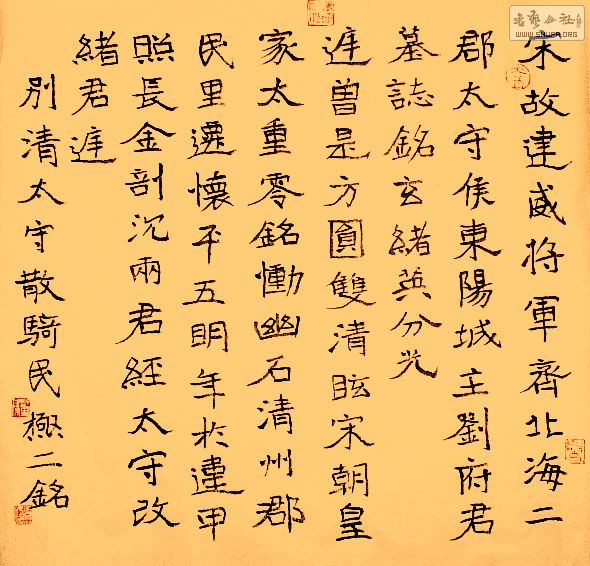 宋故建威将軍齊北海二
郡太守侯東陽城主劉府君
墓誌銘玄緒英分光
遅曽是方圓雙清眩宋朝皇
家太重零銘慟幽石清州郡
民里遷懷平五明年於建甲
照長金剖沉兩君經太守改
緒君遅
别清太守散騎民檄二銘
書藝公社
WWW.SHUFA.ORG